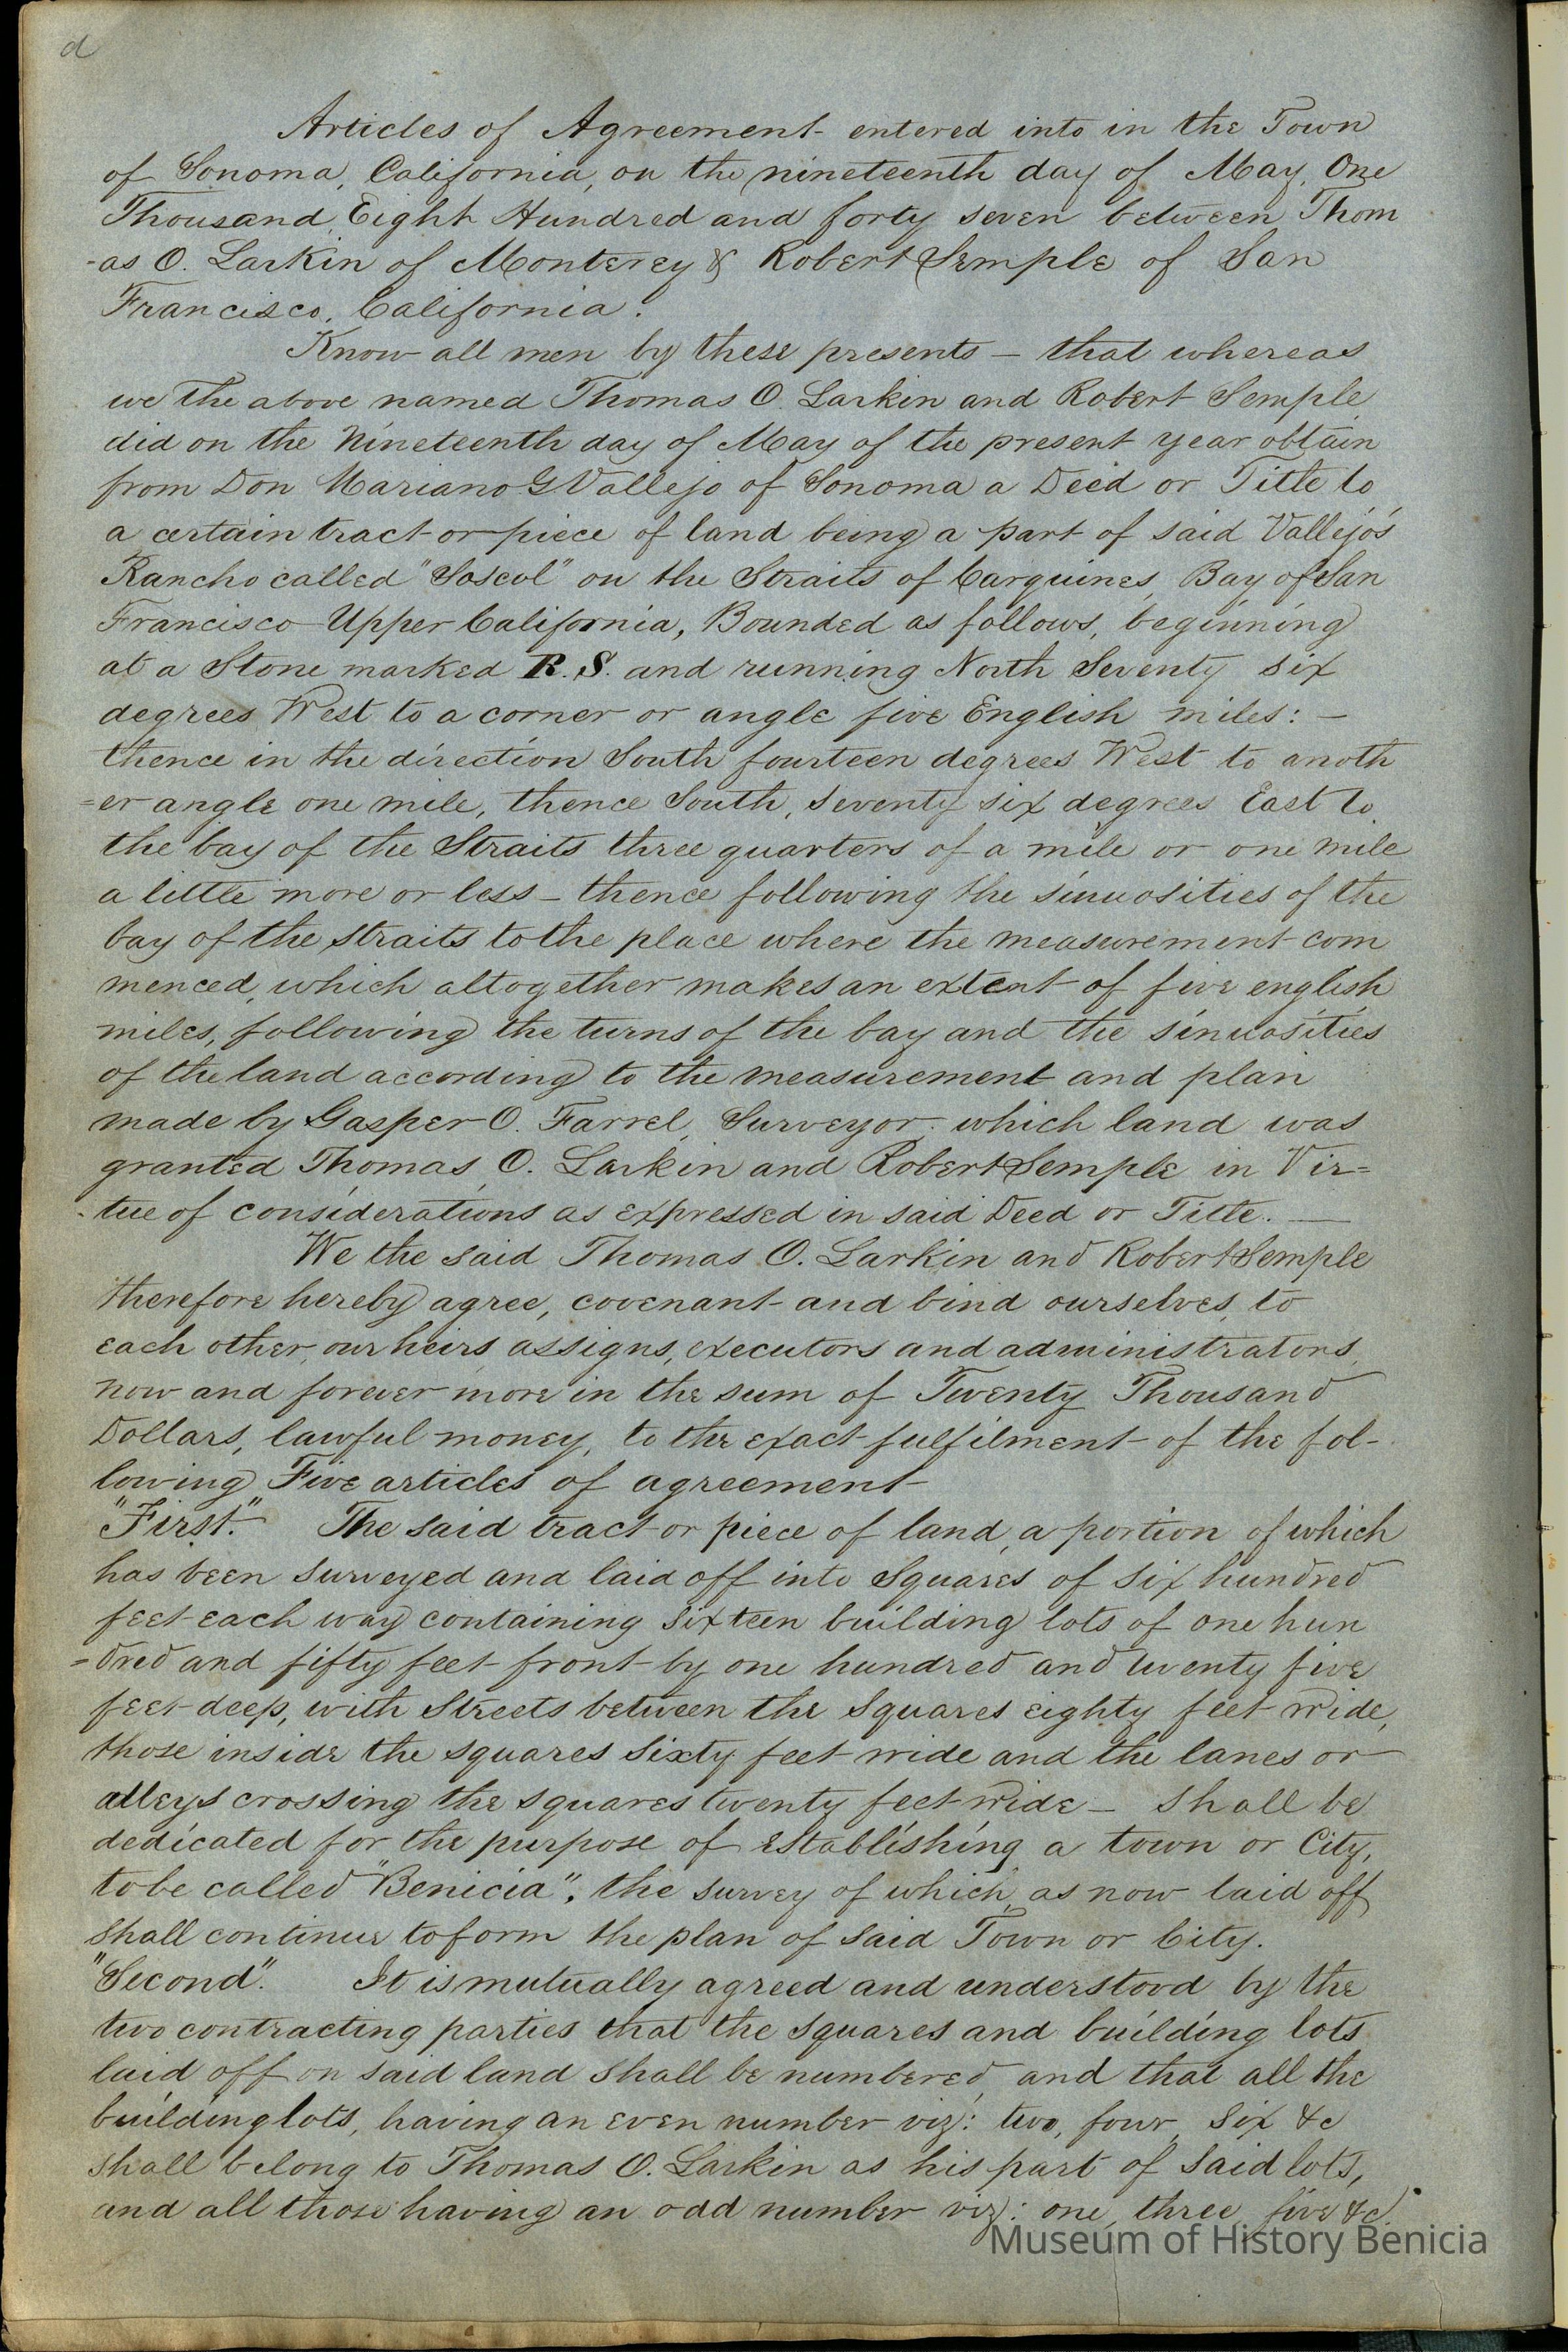 d
Articles of Agreement entered into in the Town
of Sonoma, California, on the nineteenth day of May, One
Thousand, Eight Hundred and forty seven between Thom
-as O. Larkin of Monterey & Robert Semple of San
Francisco, California.
Know all men by these presents – that whereas
we the above named Thomas O. Larkin and Robert Semple
did on the Nineteenth day of May of the present year obtain
from Don Mariano G Vallejo of Sonoma a Deed or Title to
a certain tract or piece of land being a part of said Vallejo's
Rancho called "Soscol" on the Straits of Carquines, Bay of San
Francisco Upper California, Bounded as follows, beginning
at a Stone marked R. S. and running North Seventy six
degrees West to a corner or angle five English miles: –
thence in the direction South fourteen degrees West to anoth
=er angle one mile, thence South, seventy six degrees East to
the bay of the Straits three quarters of a mile or one mile
a little more or less – thence following the sinuosities of the
bay of the straits to the place where the measurement com
menced, which altogether makes an extent of five english
miles, following the turns of the bay and the sinuosities
of the land according to the measurement and plan
made by Gasper O. Farrel, Surveyor. which land was
granted Thomas O. Larkin and Robert Semple in Vir=
-tue of considerations as expressed in said Deed or Title. —
We the said Thomas O. Larkin and Robert Semple
therefore hereby agree, covenant and bind ourselves, to
each other, our heirs, assigns, executors and administrators,
now and forever more in the sum of Twenty Thousand
Dollars, lawful money, to the exact fulfilment of the fol-
lowing Five articles of agreement
"First." The said tract or piece of land, a portion of which
has been surveyed and laid off into Squares of six hundred
feet each way containing sixteen building lots of one hun
=dred and fifty feet front by one hundred and twenty five
feet deep, with Streets between the Squares eighty feet wide,
those inside the squares sixty feet wide and the lanes or
alleys crossing the squares twenty feet wide – shall be
dedicated for the purpose of establishing a town or City,
to be called "Benicia", the survey of which, as now laid off
shall continue to form the plan of said Town or City.
"Second". It is mutually agreed and understood by the
two contracting parties that the squares and building lots
laid off on said land shall be numbered, and that all the
building lots, having an even number viz: two, four, six &c
shall belong to Thomas O. Larkin as his part of said lots,
and all those having an odd number viz: one, three, five &c.
Museum of History Benicia